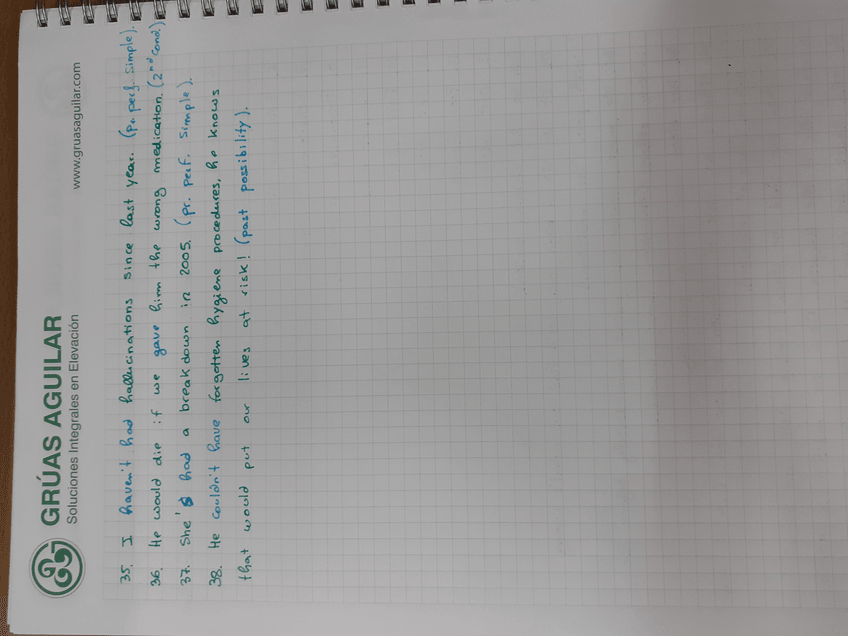 GRÚAS AGUILAR
Soluciones Integrales en Elevación
www.gruasaguilar.com
35. I haven't had hallucinations since last year. (pr. perf. simple).
36. He would die if we gave him the wrong medication. (2nd cond.)
37. She's had a breakdown in 2005. (pr. perf. simple).
38. He couldn't have forgotten hygiene procedures, he knows
that would put our lives at risk! (past possibility).